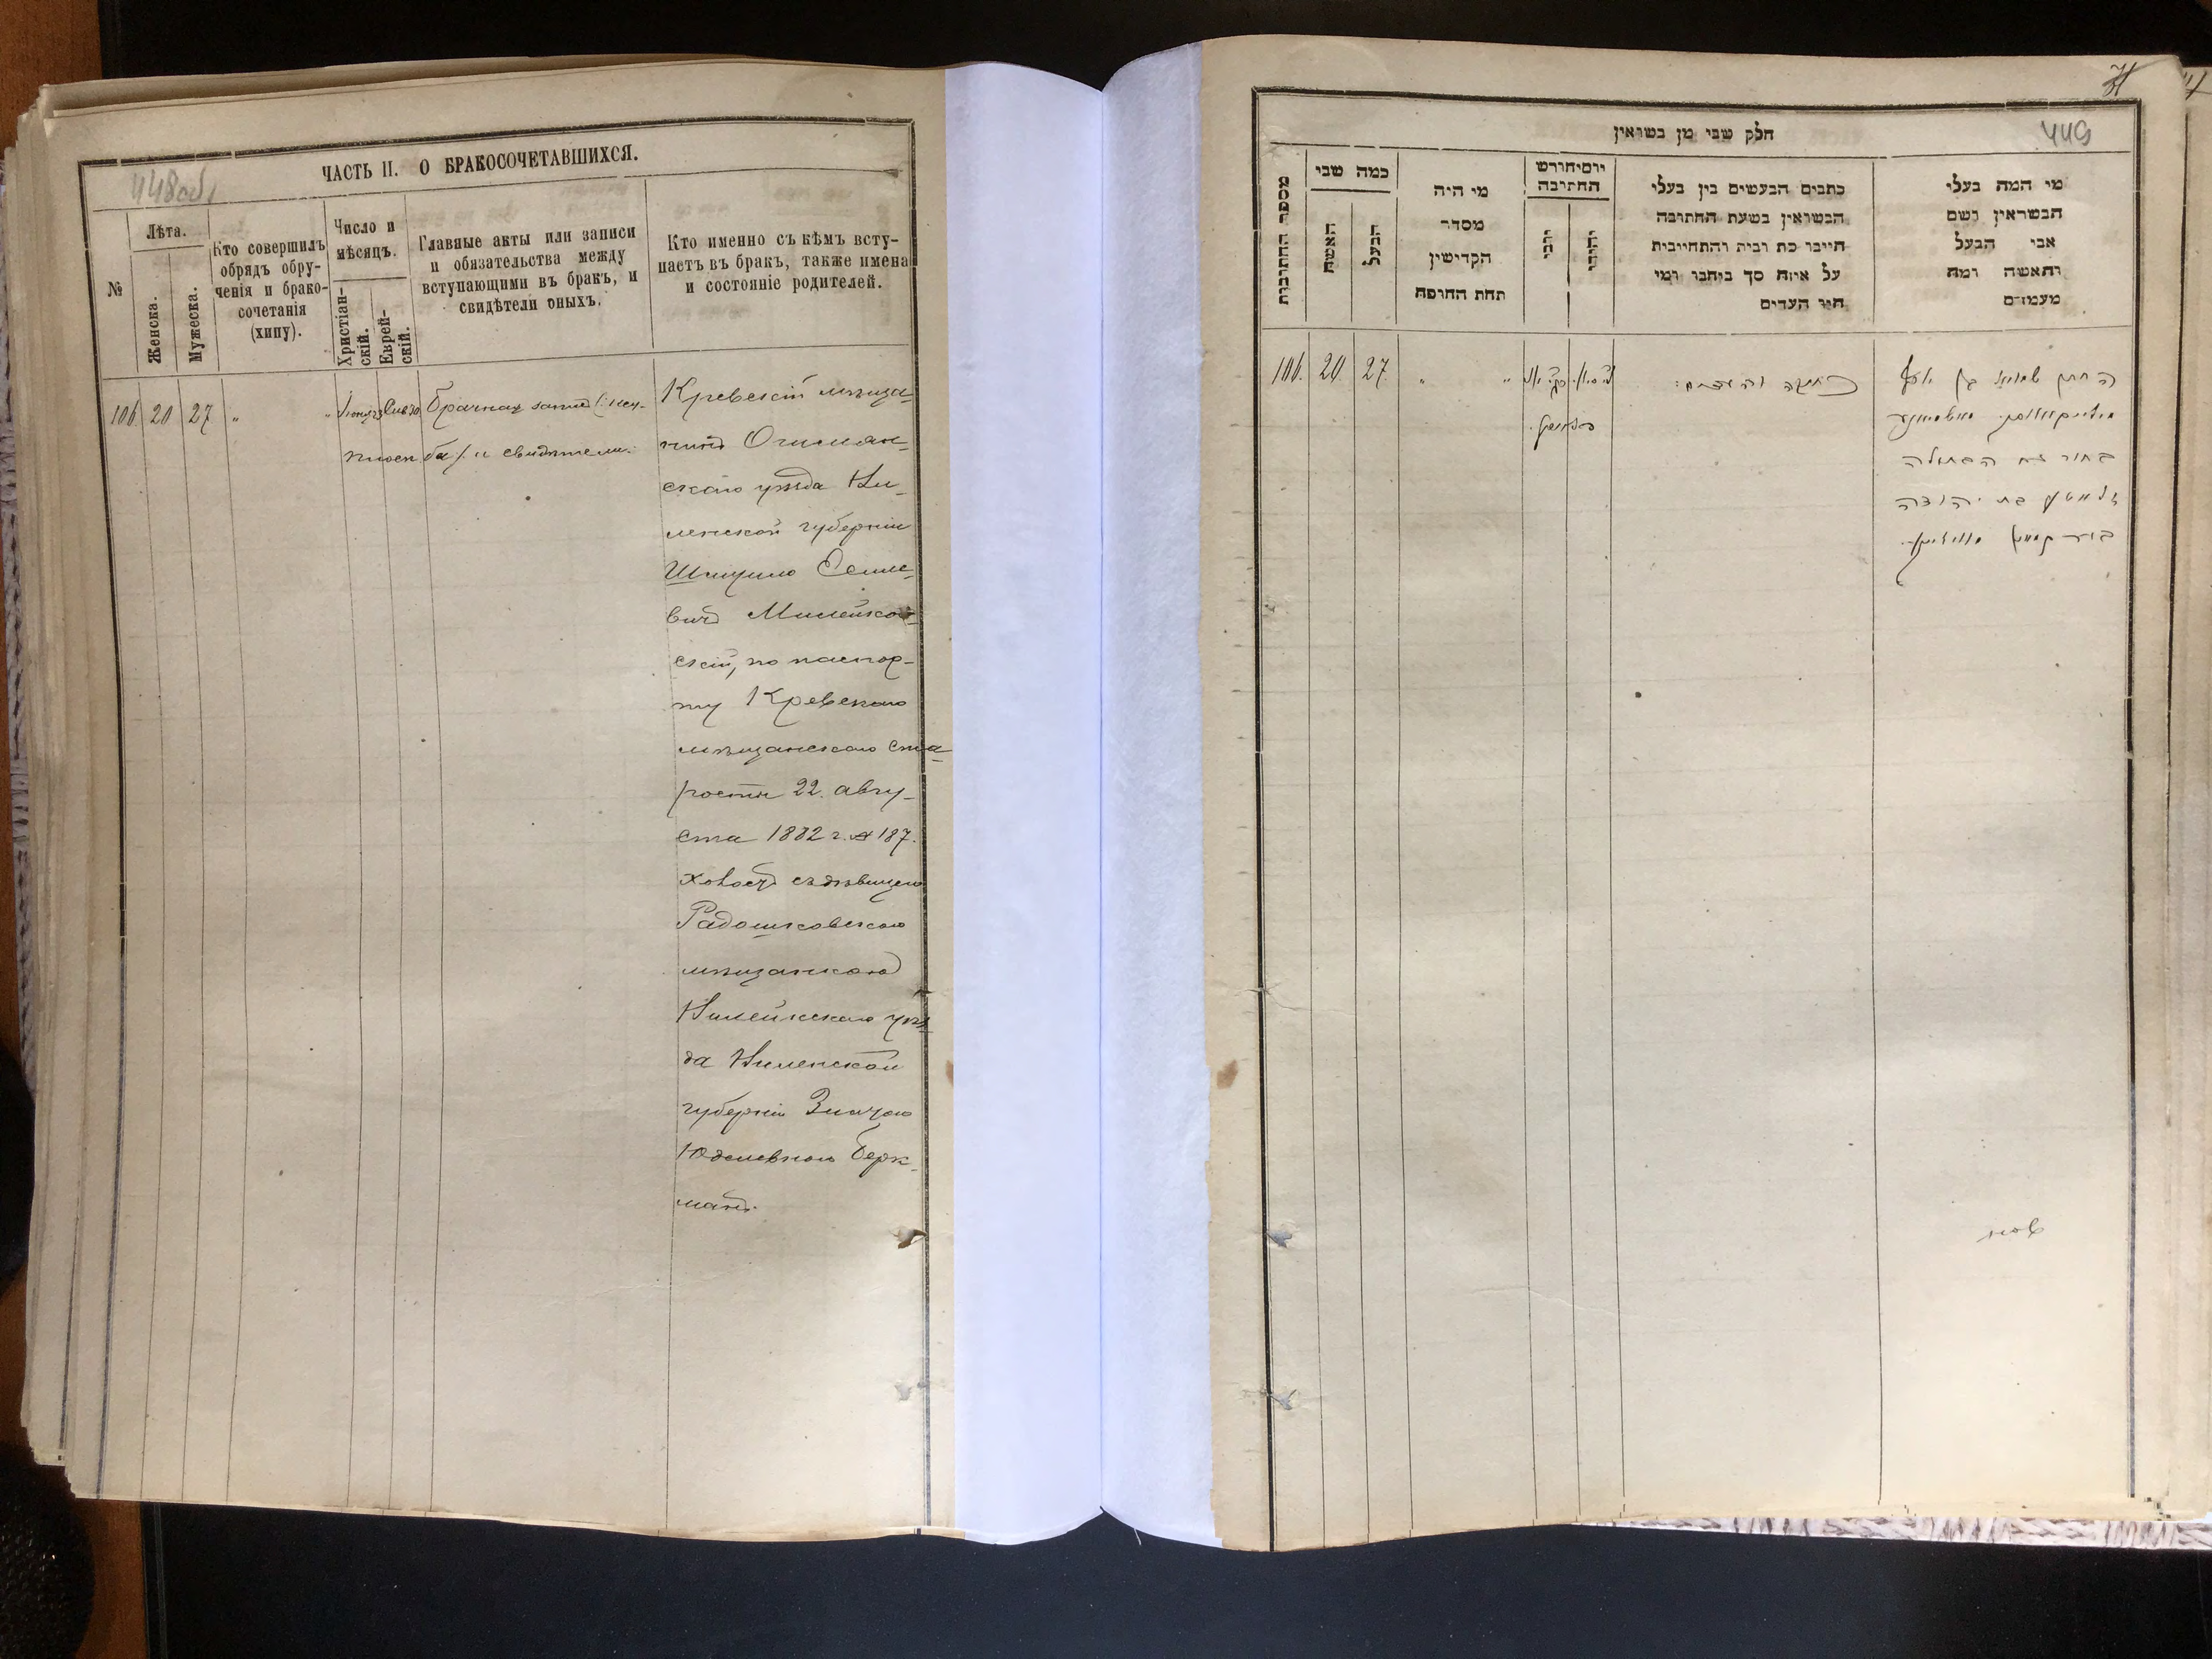 448об.
ЧАСТЬ II. О БРАКОСОЧЕТАВШИХСЯ.
№
Лѣта.
Женска.
Мужеска.
Кто совершилъ
обрядъ обру-
ченія и брако-
сочетанія
(хипу).
Число и
мѣсяцъ.
Христіан-
скій.
Еврей-
скій.
Главные акты или записи
и обязательства между
вступающими въ бракъ, и
свидѣтели оныхъ.
Кто именно съ кѣмъ всту-
паетъ въ бракъ, также имена
и состояніе родителей.
106. 20 27 " "
Брачная запись (: кету-
ба :) и свидѣтели.
Кревскій мѣща-
нинъ Ошмян-
скаго уѣзда Ви-
ленской губерніи
Шмуило
вичъ Милейков-
скій, по паспор-
ту Кревскаго
мѣщанскаго ста-
росты 22 авгу-
ста 1882 г. № 187.
холостъ съ дѣвицею
Радошковскою
мѣщанкою
Вилейскаго уѣз-
да Виленской
губерніи Златою
Юделевною Берк-
манъ.
449
חלק שני מן נשואין
מספר החתונות
כמה שני
האשה
הבעל
מי היה
מסדר
הקדישין
תחת החופה
יום וחורש
החתונה
יוני
יהודי
כתבים הנעשים בין בעלי
הנשואין בשעת החתונה
חייבו כת ובית והתחייבות
על איזה סך נוחבו ומי
היו העדים
מי המה בעלי
הנשואין ושם
אבי הבעל
והאשה ומה
מעמדם
106. 20. 27. " "
כתובה ועדים:
החתן שמואל בן
בחור עם הבתולה
זלאטע בת יהודה